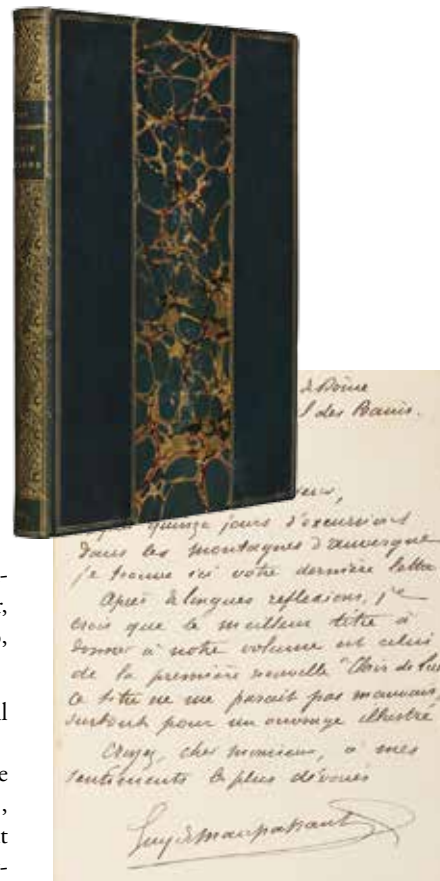 de Dôme
l des Bains.
sieur,
après quinze jours d'excursions
dans les montagnes d'auvergne
je trouve ici votre dernière lettre
Après de longues réflexions, je
crois que le meilleur titre à
donner à notre volume est celui
de la première nouvelle "Clair de Lun
Ce titre ne me paraît pas mauvais,
surtout pour un ouvrage illustré
Croyez, cher monsieur, à mes
sentiments les plus dévoués
Guy de Maupassant